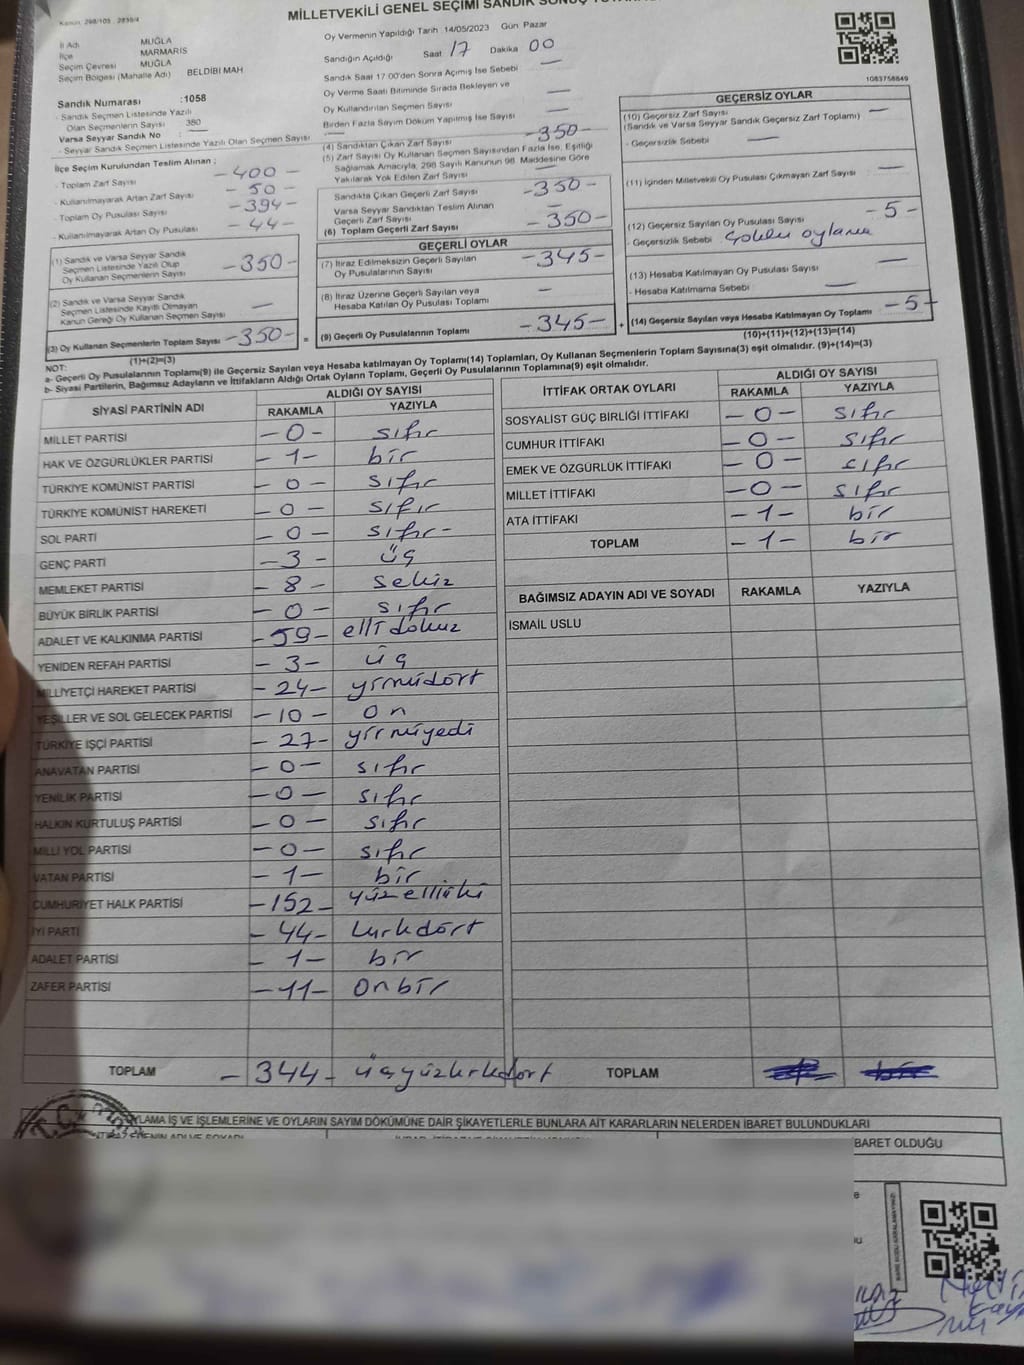 Kanun: 298/105 , 2839/4
MİLLETVEKİLİ GENEL SEÇİMİ SANDIK SONUÇ
İl Adı MUĞLA
İlçe MARMARİS
Seçim Çevresi MUĞLA
Seçim Bölgesi (Mahalle Adı) BELDİBİ MAH
Sandık Numarası :1058
- Sandık Seçmen Listesinde Yazılı
Olan Seçmenlerin Sayısı 380
Varsa Seyyar Sandık No :
- Seyyar Sandık Seçmen Listesinde Yazılı Olan Seçmen Sayısı
Oy Vermenin Yapıldığı Tarih :14/05/2023 Gün Pazar
Sandığın Açıldığı Saat 17 Dakika 00
Sandık Saat 17:00'den Sonra Açımış İse Sebebi —
Oy Verme Saati Bitiminde Sırada Bekleyen ve
Oy Kullandırılan Seçmen Sayısı —
Birden Fazla Sayım Döküm Yapılmış İse Sayısı —
1083758849
İlçe Seçim Kurulundan Teslim Alınan ;
- Toplam Zarf Sayısı -400-
- Kullanılmayarak Artan Zarf Sayısı -50-
- Toplam Oy Pusulası Sayısı -394-
- Kullanılmayarak Artan Oy Pusulası -44-
(1) Sandık ve Varsa Seyyar Sandık
Seçmen Listesinde Yazılı Olup
Oy Kullanan Seçmenlerin Sayısı -350-
(2) Sandık ve Varsa Seyyar Sandık
Seçmen Listesinde Kayıtlı Olmayan
Kanun Gereği Oy Kullanan Seçmen Sayısı —
(3) Oy Kullanan Seçmenlerin Toplam Sayısı -350-
(1)+(2)=(3)
(4) Sandıktan Çıkan Zarf Sayısı -350-
(5) Zarf Sayısı Oy Kullanan Seçmen Sayısından Fazla İse, Eşitliği
Sağlamak Amacıyla, 298 Sayılı Kanunun 98. Maddesine Göre
Yakılarak Yok Edilen Zarf Sayısı —
Sandıkta Çıkan Geçerli Zarf Sayısı -350-
Varsa Seyyar Sandıktan Teslim Alınan
Geçerli Zarf Sayısı —
(6) Toplam Geçerli Zarf Sayısı -350-
GEÇERLİ OYLAR
(7) İtiraz Edilmeksizin Geçerli Sayılan
Oy Pusulalarının Sayısı -345-
(8) İtiraz Üzerine Geçerli Sayılan veya
Hesaba Katılan Oy Pusulası Toplamı —
(9) Geçerli Oy Pusulalarının Toplamı -345-
GEÇERSİZ OYLAR
(10) Geçersiz Zarf Sayısı —
(Sandık ve Varsa Seyyar Sandık Geçersiz Zarf Toplamı)
- Geçersizlik Sebebi —
(11) İçinden Milletvekili Oy Pusulası Çıkmayan Zarf Sayısı —
(12) Geçersiz Sayılan Oy Pusulası Sayısı -5-
- Geçersizlik Sebebi
(13) Hesaba Katılmayan Oy Pusulası Sayısı —
- Hesaba Katılmama Sebebi —
(14) Geçersiz Sayılan veya Hesaba Katılmayan Oy Toplamı -5-
(10)+(11)+(12)+(13)=(14)
NOT:
a- Geçerli Oy Pusulalarının Toplamı(9) ile Geçersiz Sayılan veya Hesaba katılmayan Oy Toplamı(14) Toplamları, Oy Kullanan Seçmenlerin Toplam Sayısına(3) eşit olmalıdır. (9)+(14)=(3)
b- Siyasi Partilerin, Bağımsız Adayların ve İttifakların Aldığı Ortak Oyların Toplamı, Geçerli Oy Pusulalarının Toplamına(9) eşit olmalıdır.
SİYASİ PARTİNİN ADI ALDIĞI OY SAYISI
RAKAMLA YAZIYLA
MİLLET PARTİSİ -0- sıfır
HAK VE ÖZGÜRLÜKLER PARTİSİ -1- bir
TÜRKİYE KOMÜNİST PARTİSİ -0- sıfır
TÜRKİYE KOMÜNİST HAREKETİ -0- sıfır
SOL PARTİ -0- sıfır-
GENÇ PARTİ -3- üç
MEMLEKET PARTİSİ -8- sekiz
BÜYÜK BİRLİK PARTİSİ -0- sıfır
ADALET VE KALKINMA PARTİSİ -59- elli dokuz
YENİDEN REFAH PARTİSİ -3- üç
MİLLİYETÇİ HAREKET PARTİSİ -24- yirmidört
YEŞİLLER VE SOL GELECEK PARTİSİ -10- on
TÜRKİYE İŞÇİ PARTİSİ -27- yirmiyedi
ANAVATAN PARTİSİ -0- sıfır
YENİLİK PARTİSİ -0- sıfır
HALKIN KURTULUŞ PARTİSİ -0- sıfır
MİLLİ YOL PARTİSİ -0- sıfır
VATAN PARTİSİ -1- bir
CUMHURİYET HALK PARTİSİ -152- yüzelliiki
İYİ PARTİ -44- kırkdört
ADALET PARTİSİ -1- bir
ZAFER PARTİSİ -11- onbir
TOPLAM -344- üçyüzkırkdört
İTTİFAK ORTAK OYLARI ALDIĞI OY SAYISI
RAKAMLA YAZIYLA
SOSYALİST GÜÇ BİRLİĞİ İTTİFAKI -0- sıfır
CUMHUR İTTİFAKI -0- sıfır
EMEK VE ÖZGÜRLÜK İTTİFAKI -0- sıfır
MİLLET İTTİFAKI -0- sıfır
ATA İTTİFAKI -1- bir
TOPLAM -1- bir
BAĞIMSIZ ADAYIN ADI VE SOYADI RAKAMLA YAZIYLA
İSMAİL USLU
TOPLAM
T.C.
YLAMA İŞ VE İŞLEMLERİNE VE OYLARIN SAYIM DÖKÜMÜNE DAİR ŞİKAYETLERLE BUNLARA AİT KARARLARIN NELERDEN İBARET BULUNDUKLARI
BARET OLDUĞU